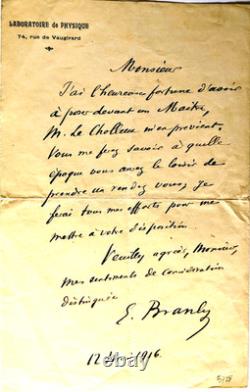 LABORATOIRE DE PHYSIQUE
74, rue de Vaugirard
Monsieur
J'ai l'heureuse fortune d'avoir
à poser devant un Maître,
M. Le Cholleux m'en prévient.
Vous me ferez savoir à quelle
époque vous aurez le loisir de
prendre un rendez vous, je
ferai tous mes efforts pour me
mettre à votre disposition.
Veuillez agréer, Monsieur,
mes sentiments de considération
distinguée
E. Branly
12 1916.